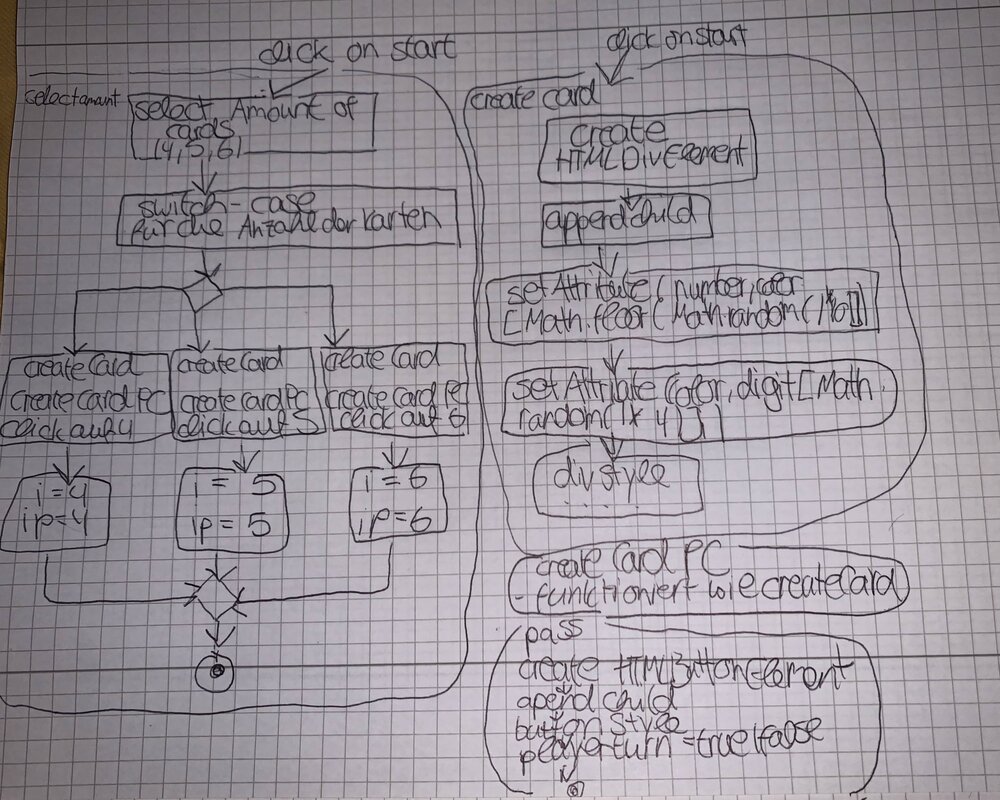 click on start
selectamount
select Amount of
cards
(4,5,6)
switch-case
für die Anzahl der Karten
createCard
createCardPC
click auf 4
createCard
createCardPC
click auf 5
createCard
createCardPC
click auf 6
i=4
ip=4
i = 5
ip = 5
i = 6
ip=6
click on start
create card
create
HTMLDivElement
appendChild
setAttribute (number,
[Math.floor( Math.random(
setAttribute Color, digit[Math.
random(1*4)]
div style
....
create Card PC
- funktioniert wie createCard
pass
create HTMLButtonElement
apend child
button style
playerturn =true|false